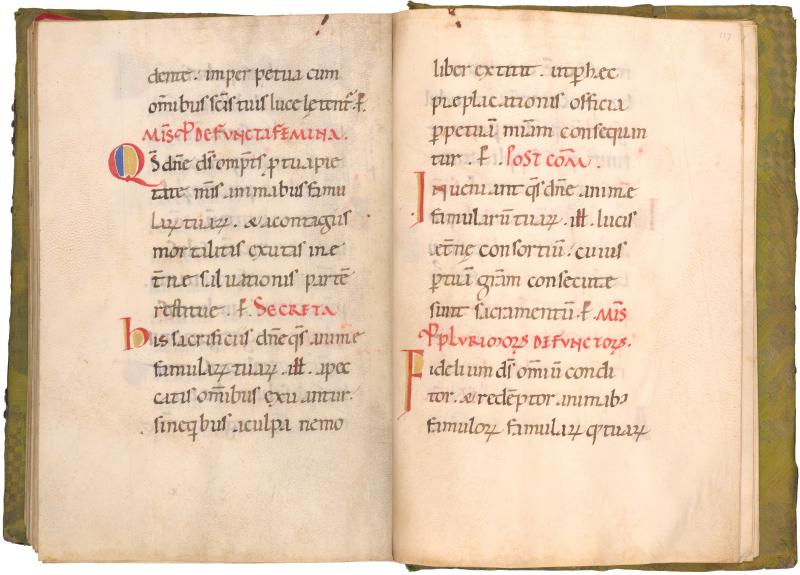 dente. imperpetua cum
omībus scīs tuis luce letent̄. P̄.
MIS̄ P̄ DEFUNCTA FEMINA.
Qs̄ dn̄e ds̄ omp̄ts p̄ tua pie
tate mis̄ animabus famu
larꝝ tuarꝝ. & a contagiis
mortalitis exutis in e
t̄ne saluationis partē
restitue. P̄. SECRETA
his sacrificiis dn̄e qs̄ anime
famularꝝ tuarꝝ. ill. apec
catis omībus exuantur.
sine qbus a culpa nemo
117
liber extitit. ut p̄ hec
pie placationis officia
p̄petuā miām consequan
tur. P̄. POST COM̄.
Inueniant qs̄ dn̄e anime
famularū tuarꝝ. ill. lucis
et̄ne consortiū. cuius
p̄tuā grām consecute
sunt sacramentū. P̄. MIS̄
P̄ PLURIMORꝝ DEFUNCTORꝝ.
Fidelium ds̄ omiū condi
tor. & redēptor animabꝫ
famulorꝝ famularꝝ q̨ tuarꝝ